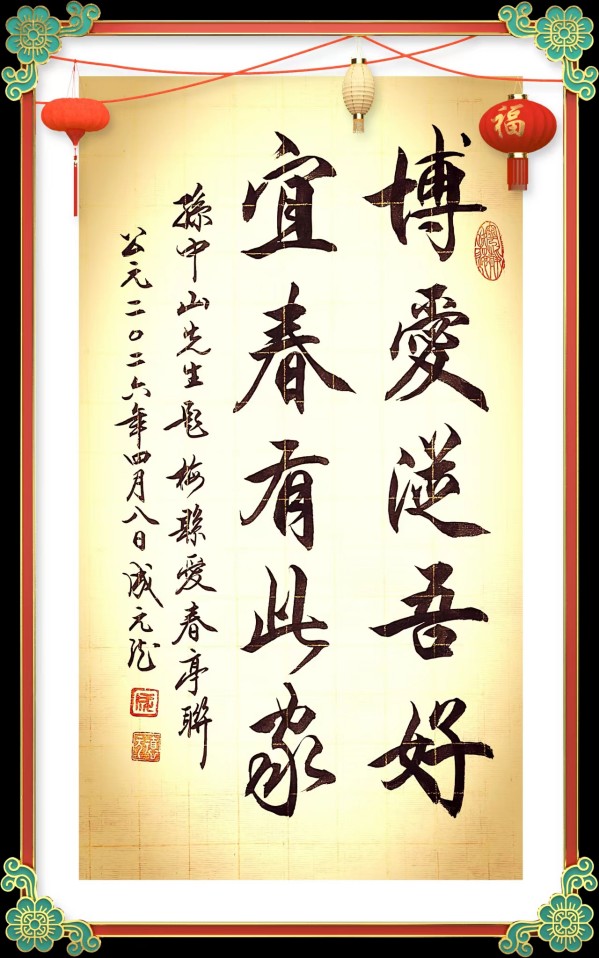 博愛從吾好
宜春有此家
孫中山先生题梅縣愛春亭聯
公元二〇二六年四月八日成元
福